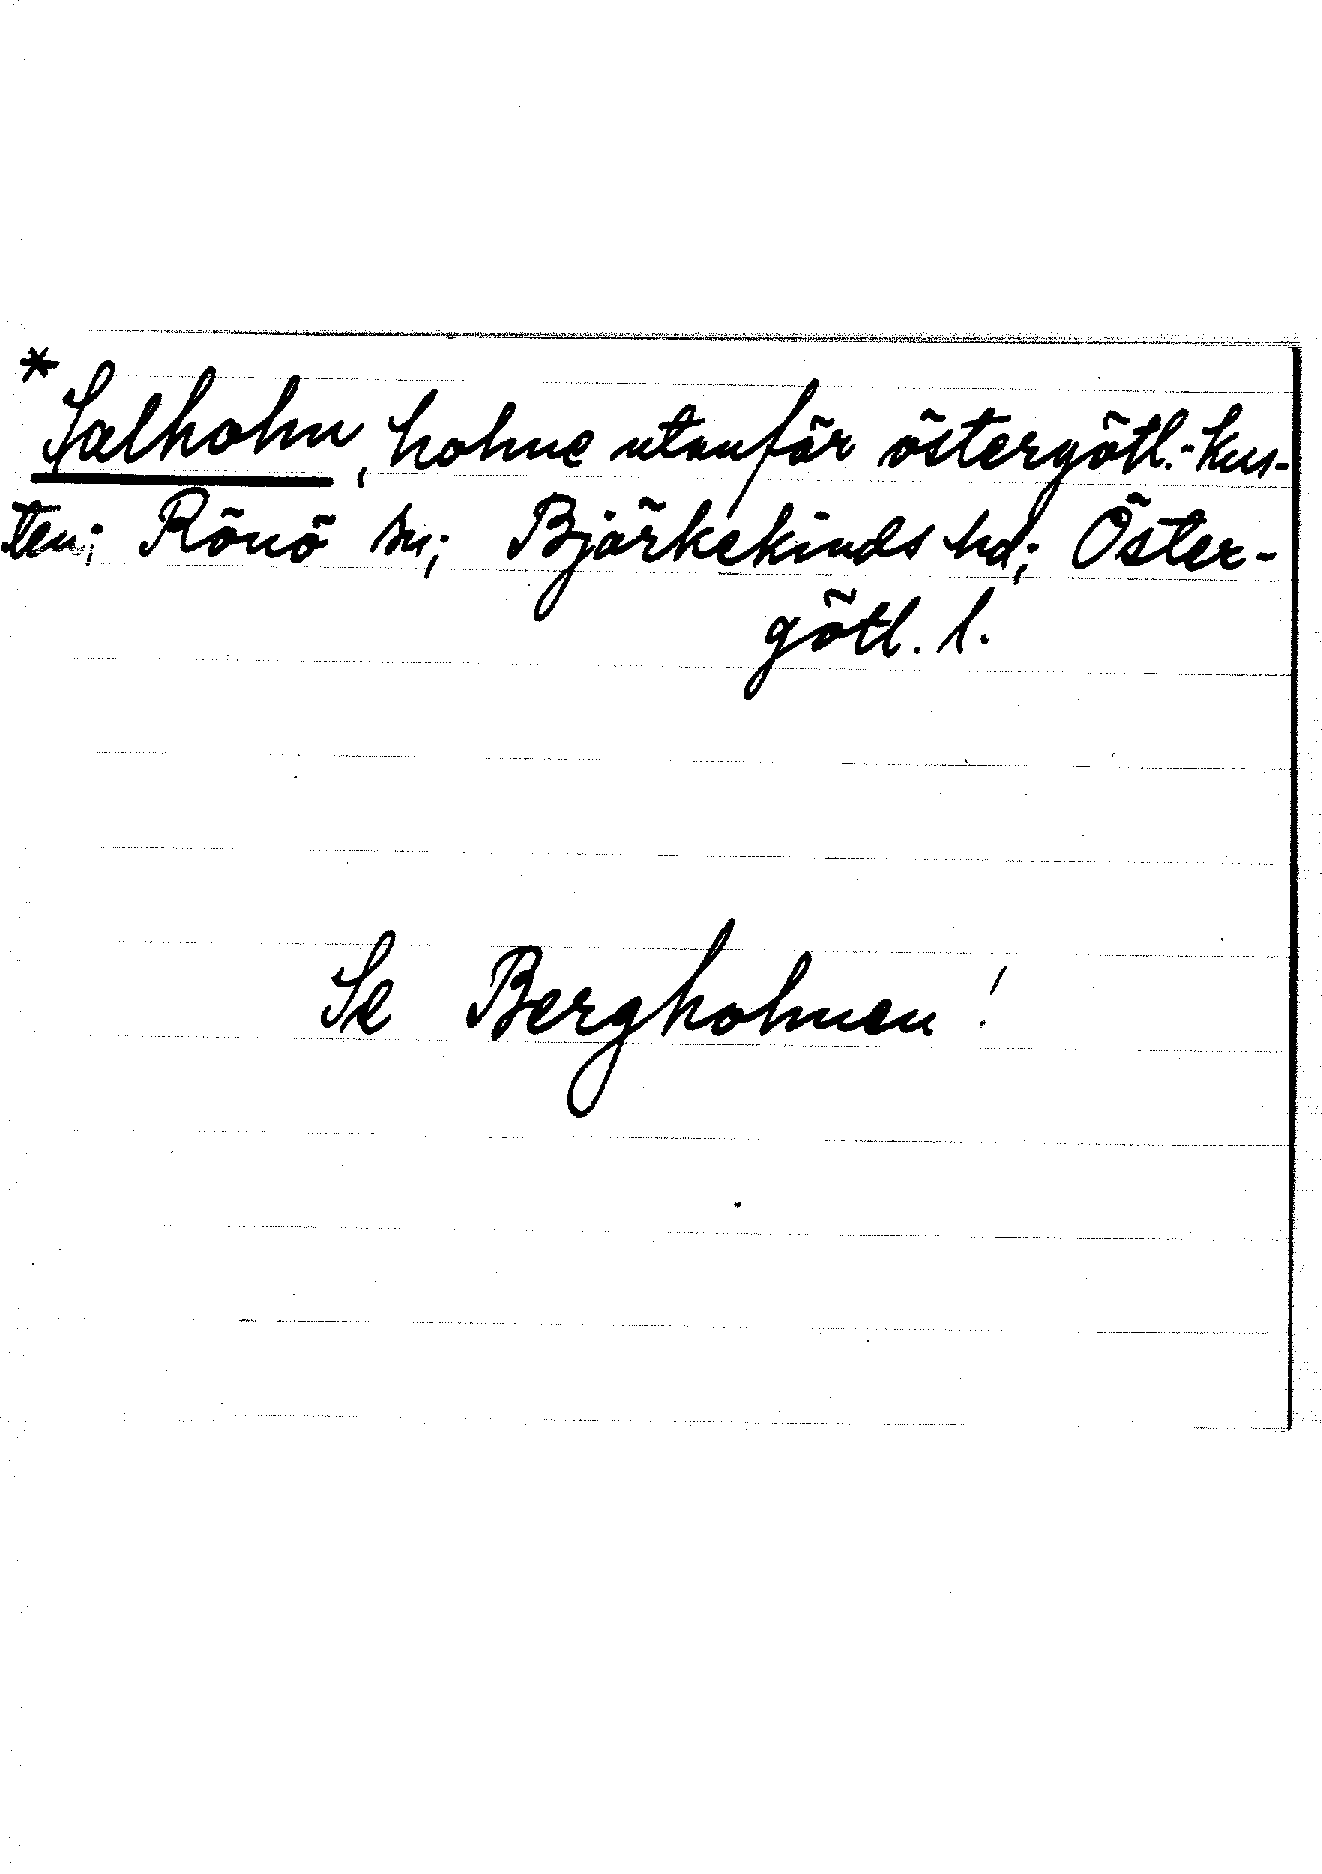 * Salholm, holme utanför östergötl.-kus-
ten; Rönö sn; Björkekinds hd; Öster-
götl. l.
Se Bergholmen!